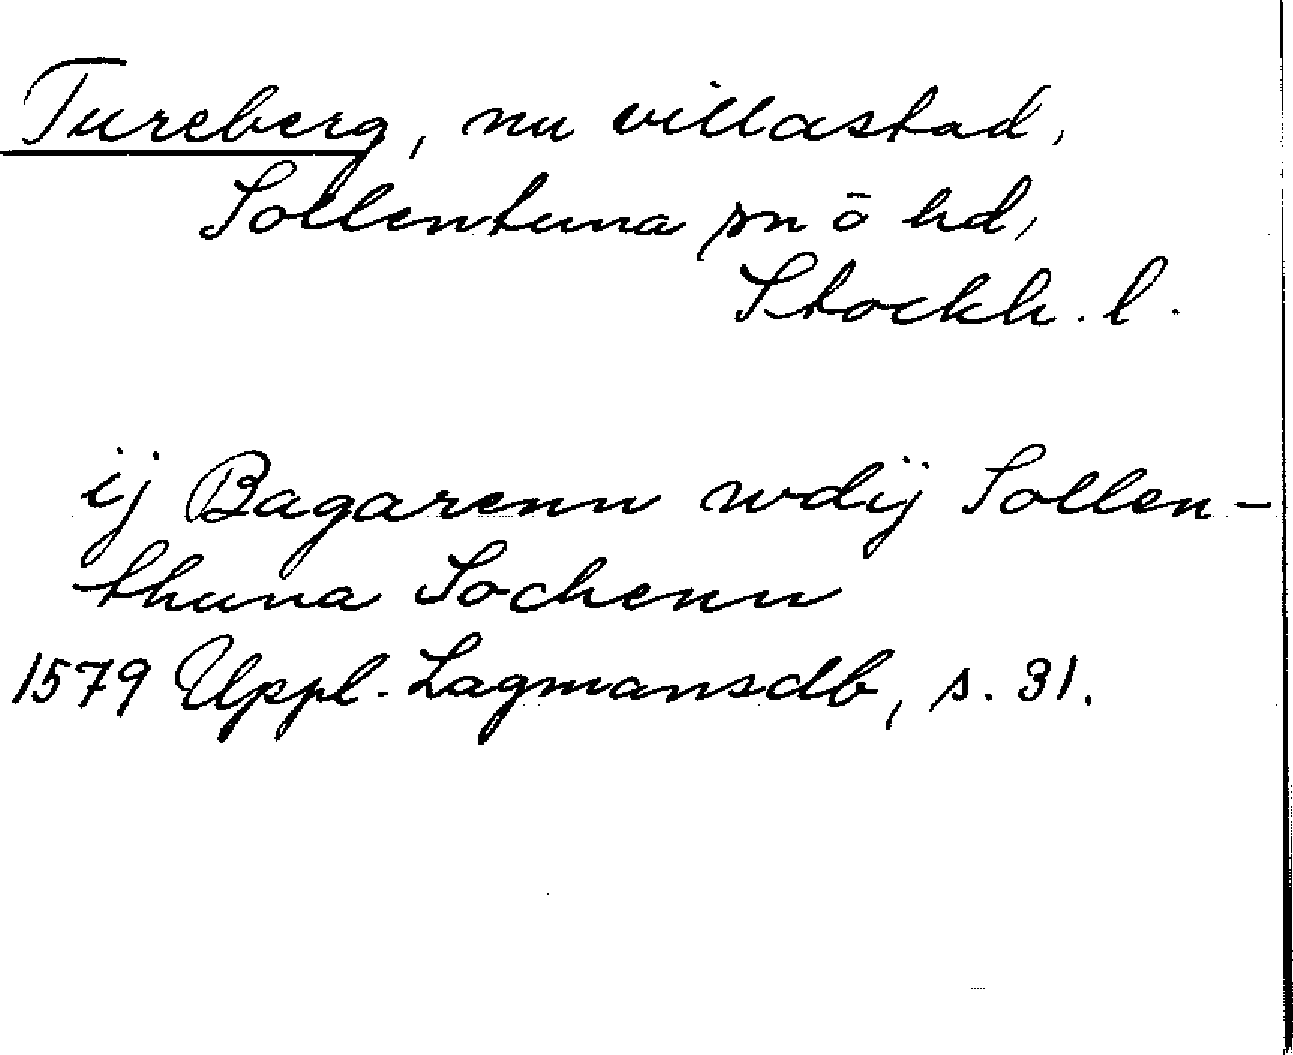 Tureberg, nu villastad,
Sollentuna sn ō hd,
Stockh. l.
ij Bagarenn wdij Sollen-
thuna Sochenn
1579 Uppl. Lagmansdb, s. 31.